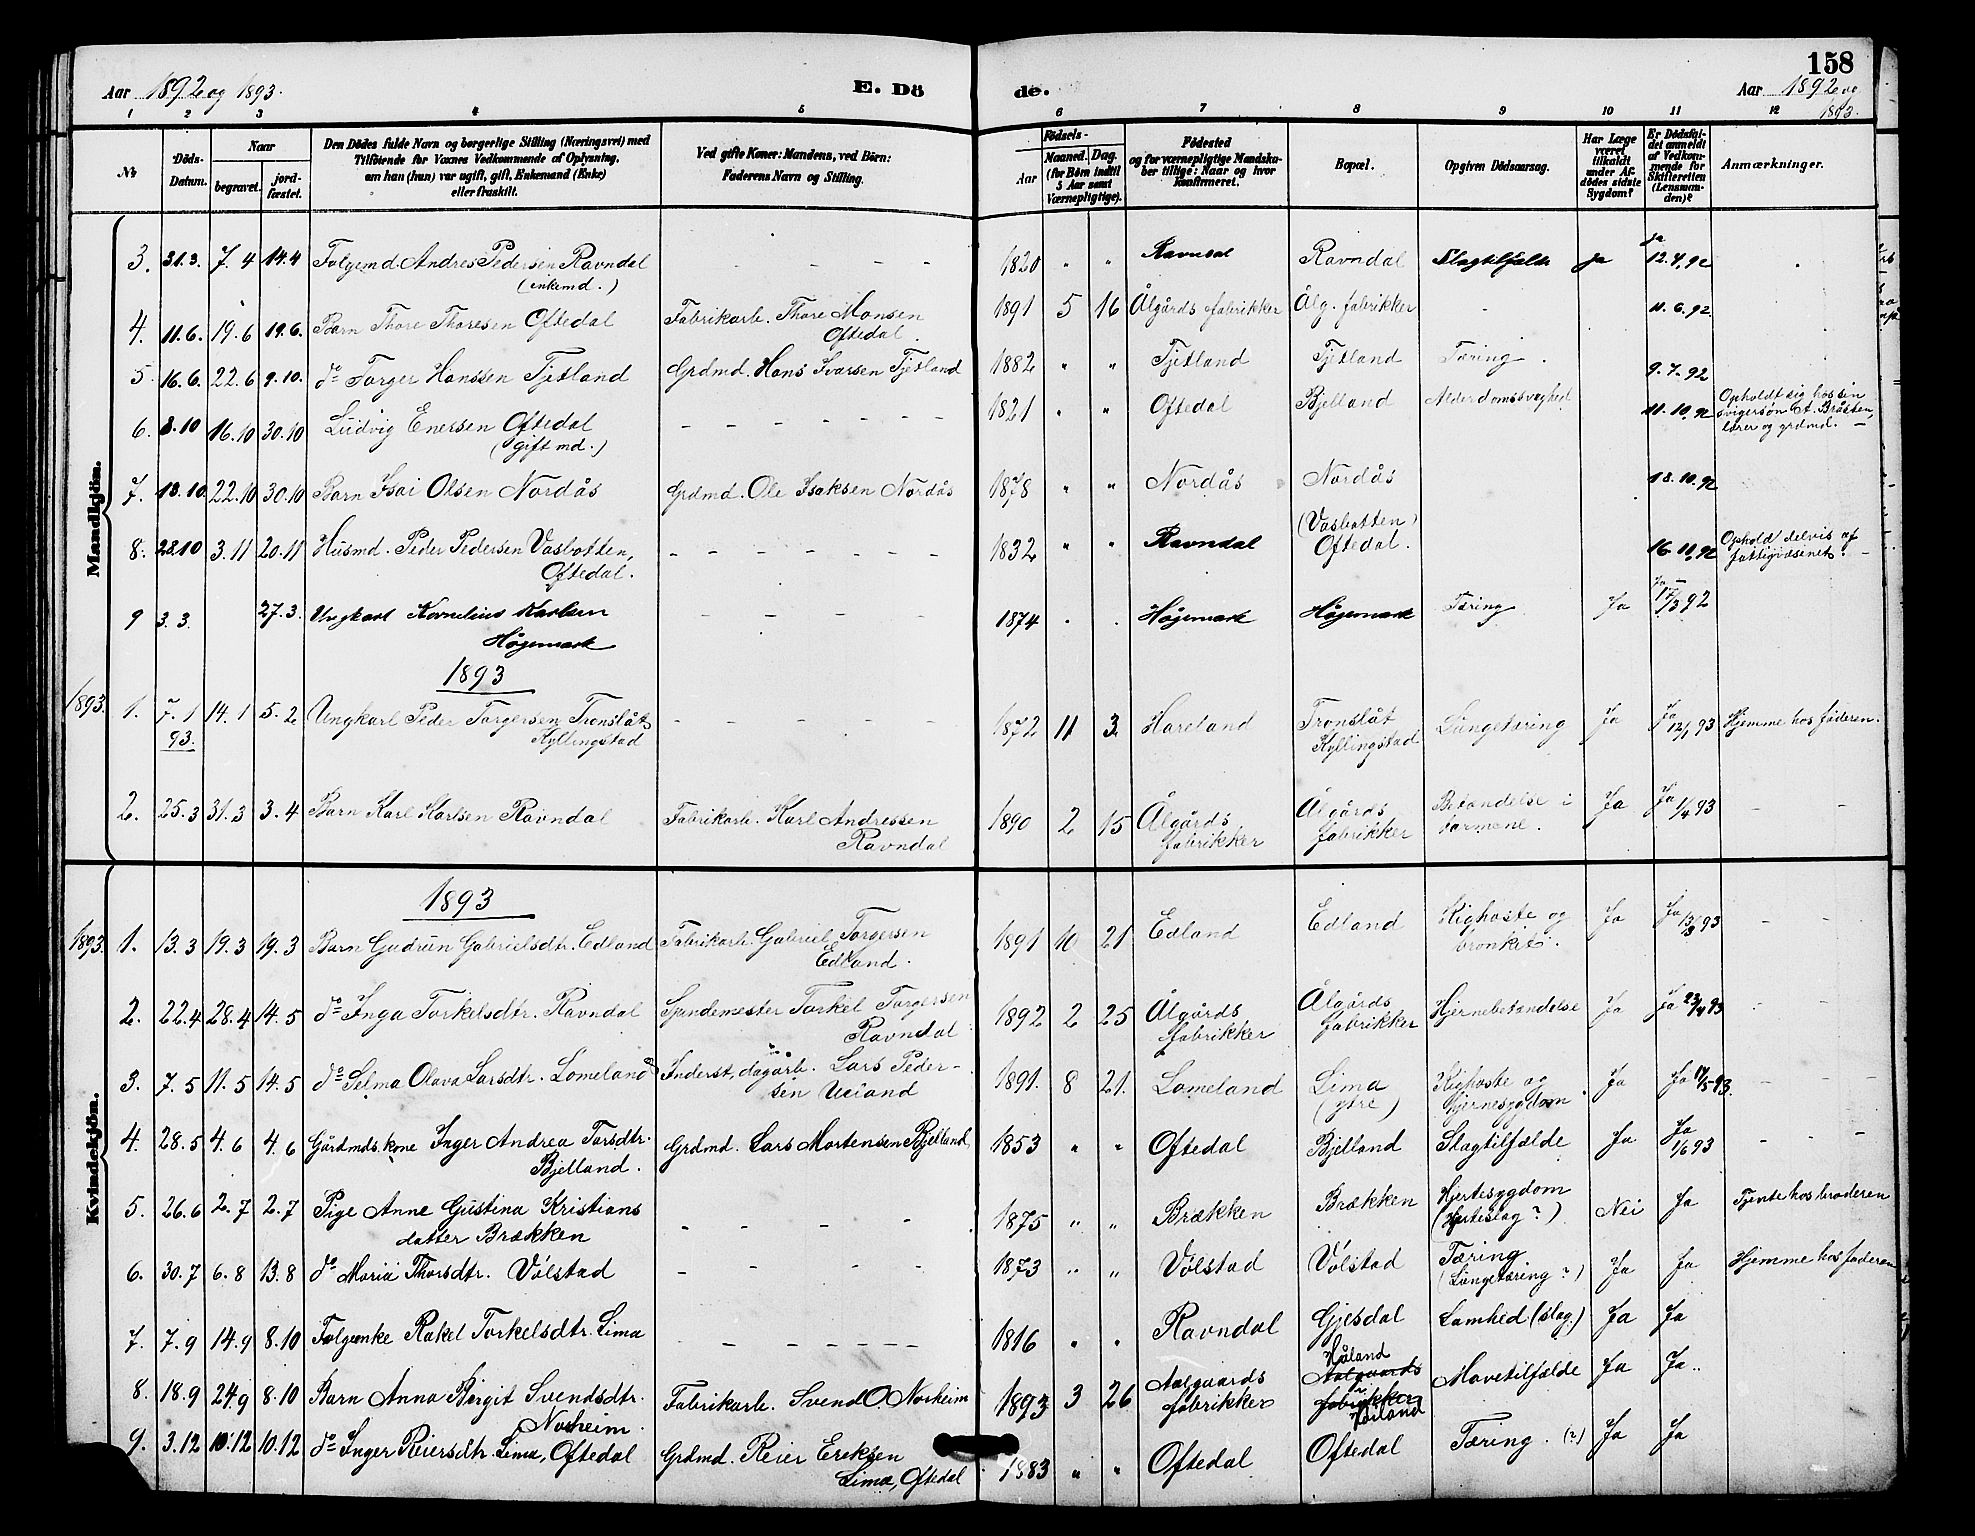 158
Aar 1892 og 1893. E. Dö
de. Aar 1892 og
1893.
1 2 3 4 5 6 7 8 9 10 11 12
No
Döds-
Datum.
Naar
begravet.
jord-
fæstet.
Den Dödes fulde Navn og borgerlige Stilling (Næringsvei) med
Tilföiende for Voxnes Vedkommende af Oplysning,
om han (hun) var ugift, gift, Enkemand (Enke)
eller fraskilt.
Ved gifte Koner: Mandens, ved Börn:
Faderens Navn og Stilling.
Födsels-
Aar
Maaned. Dag.
(for Börn indtil
5 Aar samt
Værnepligtige).
Födested
og for værnepligtige Mandska-
ber tillige: Naar og hvor
konfirmeret.
Bopæl.
Opgiven Dödsaarsag.
Har Læge
været
tilkaldt
under Af-
dödes sidste
Sygdom?
Er Dödsfal-
det anmeldt
af Vedkom-
mende for
Skifteretten
(Lensman-
den)?
Anmærkninger.
Mandkjön.
3. 31.3. 7.4 14.4 Folgemd. Andres Pedersen Ravndal
(enkemd.)
- - - - 1820 " " Ravndal Ravndal Slagtilfælde Ja Ja
12.4.92
4. 11.6. 19.6 19.6. Barn Thore Thoresen Oftedal Fabrikarb. Thore Monsen
Oftedal.
1891 5 16 Ålgårds fabrikker Ålg. fabrikker - 11.6.92
5. 16.6. 22.6 9.10. do Torger Hanssen Tjetland Grdmd. Hans Ivarsen Tjetland 1882 " " Tjetland Tjetland Tæring. 9.7.92
6. 8.10 16.10 30.10 Ludvig Enersen Oftedal
(gift md.)
- - - - - - 1821 " " Oftedal Bjelland Alderdomssvaghed 11.10.92 Opholdt sig hos sin
svigersøn A. Bråsten,
lærer og grdmd. -
7. 13.10. 22.10 30.10 Barn Isai Olsen Nordås Grdmd. Ole Isaksen Nordås 1878 " " Nordås Nordås 18.10.92
8. 28.10 3.11 20.11 Husmd. Peder Pedersen Vasbotten,
Oftedal.
- - - - - - - 1832 " " Ravndal (Vasbotten)
Oftedal.
16.11.92 Ophold delvis af
fattigvæsenet. -
9 3.3. 27.3. Ungkarl Kornelius Karlsen
Høgemark
- - - - 1874 . . Høgemark Høgemark Tæring Ja Ja
17/3 92
1893
1893. 1. 7.1
93.
14.1 5.2 Ungkarl Peder Torgersen Tronslåt
Kyllingstad
- - - - - 1872 11 3. Hareland Tronslåt
Kyllingstad
Lungetæring Ja Ja
12/1 93 Hjemme hos faderen.
2. 25.3 31.3 3.4 Barn Karl Karlsen Ravndal Fabrikarb. Karl Andressen
Ravndal
1890 2 15 Ålgårds
fabrikker
Ålgårds
fabrikker
Betændelse i
tarmene.
Ja Ja
1/4 93 - -
Kvindekjön.
1893
1893. 1. 13.3 19.3 19.3 Barn Gudrun Gabrielsdtr. Edland Fabrikarb. Gabriel Torgersen
Edland.
1891 10 21 Edland Edland Kighoste og
bronkit.
Ja Ja 13/3 93 - -
2. 22.4 28.4 14.5 do Inga Torkelsdtr. Ravndal Spindemester Torkel Torgersen
Ravndal
1892 2 25 Ålgårds
fabrikker
Ålgårds
fabrikker
Hjernebetændelse Ja Ja 23/4 93 -
3. 7.5 11.5 14.5 do Selma Olava Larsdtr. Lomeland Inderst, dagarb. Lars Peder-
sen Ueland
1891. 8 21. Lomeland Lima
(ytre)
Kighoste og
hjernesygdom.
Ja Ja 17/5 93. - - -
4. 28.5 4.6 4.6 Gårdmds. kone Inger Andrea Torsdtr.
Bjelland.
Grdmd. Lars Mortensen Bjelland, 1853 " " Oftedal Bjelland Slagtilfælde Ja Ja
1/6 93 - - -
5. 26.6 2.7 2.7 Pige Anne Gustina Kristians
datter Brækken
- - - - 1875 " " Brækken Brækken Hjertesygdom
(Hjerteslag?)
Nei Ja Tjente hos broderen
6. 30.7 6.8 13.8 do Maria Thorsdtr. Vølstad - - - - 1873 " " Vølstad Vølstad Tæring
(Lungetæring?)
Ja Ja Hjemme hos faderen
7. 7.9 14.9 8.10 Folgenke Rakel Torkelsdtr. Lima - - - - - - 1816 " " Ravndal Gjesdal Lamhed (slag) Ja Ja
8. 18.9 24.9 8.10 Barn Anna Birgit Svendsdtr.
Norheim.
Fabrikarb. Svend O. Norheim 1893 3 26 Aalgaards
fabrikker
Håland
Aalgaards
fabrikker
Mavetilfælde Ja Ja..
9. 3.12 10.12 10.12 do Inger Reiersdtr. Lima, Oftedal Grdmd. Reier Eriksen
Lima, Oftedal
1883 " " Oftedal Oftedal Tæring. (?) Ja Ja